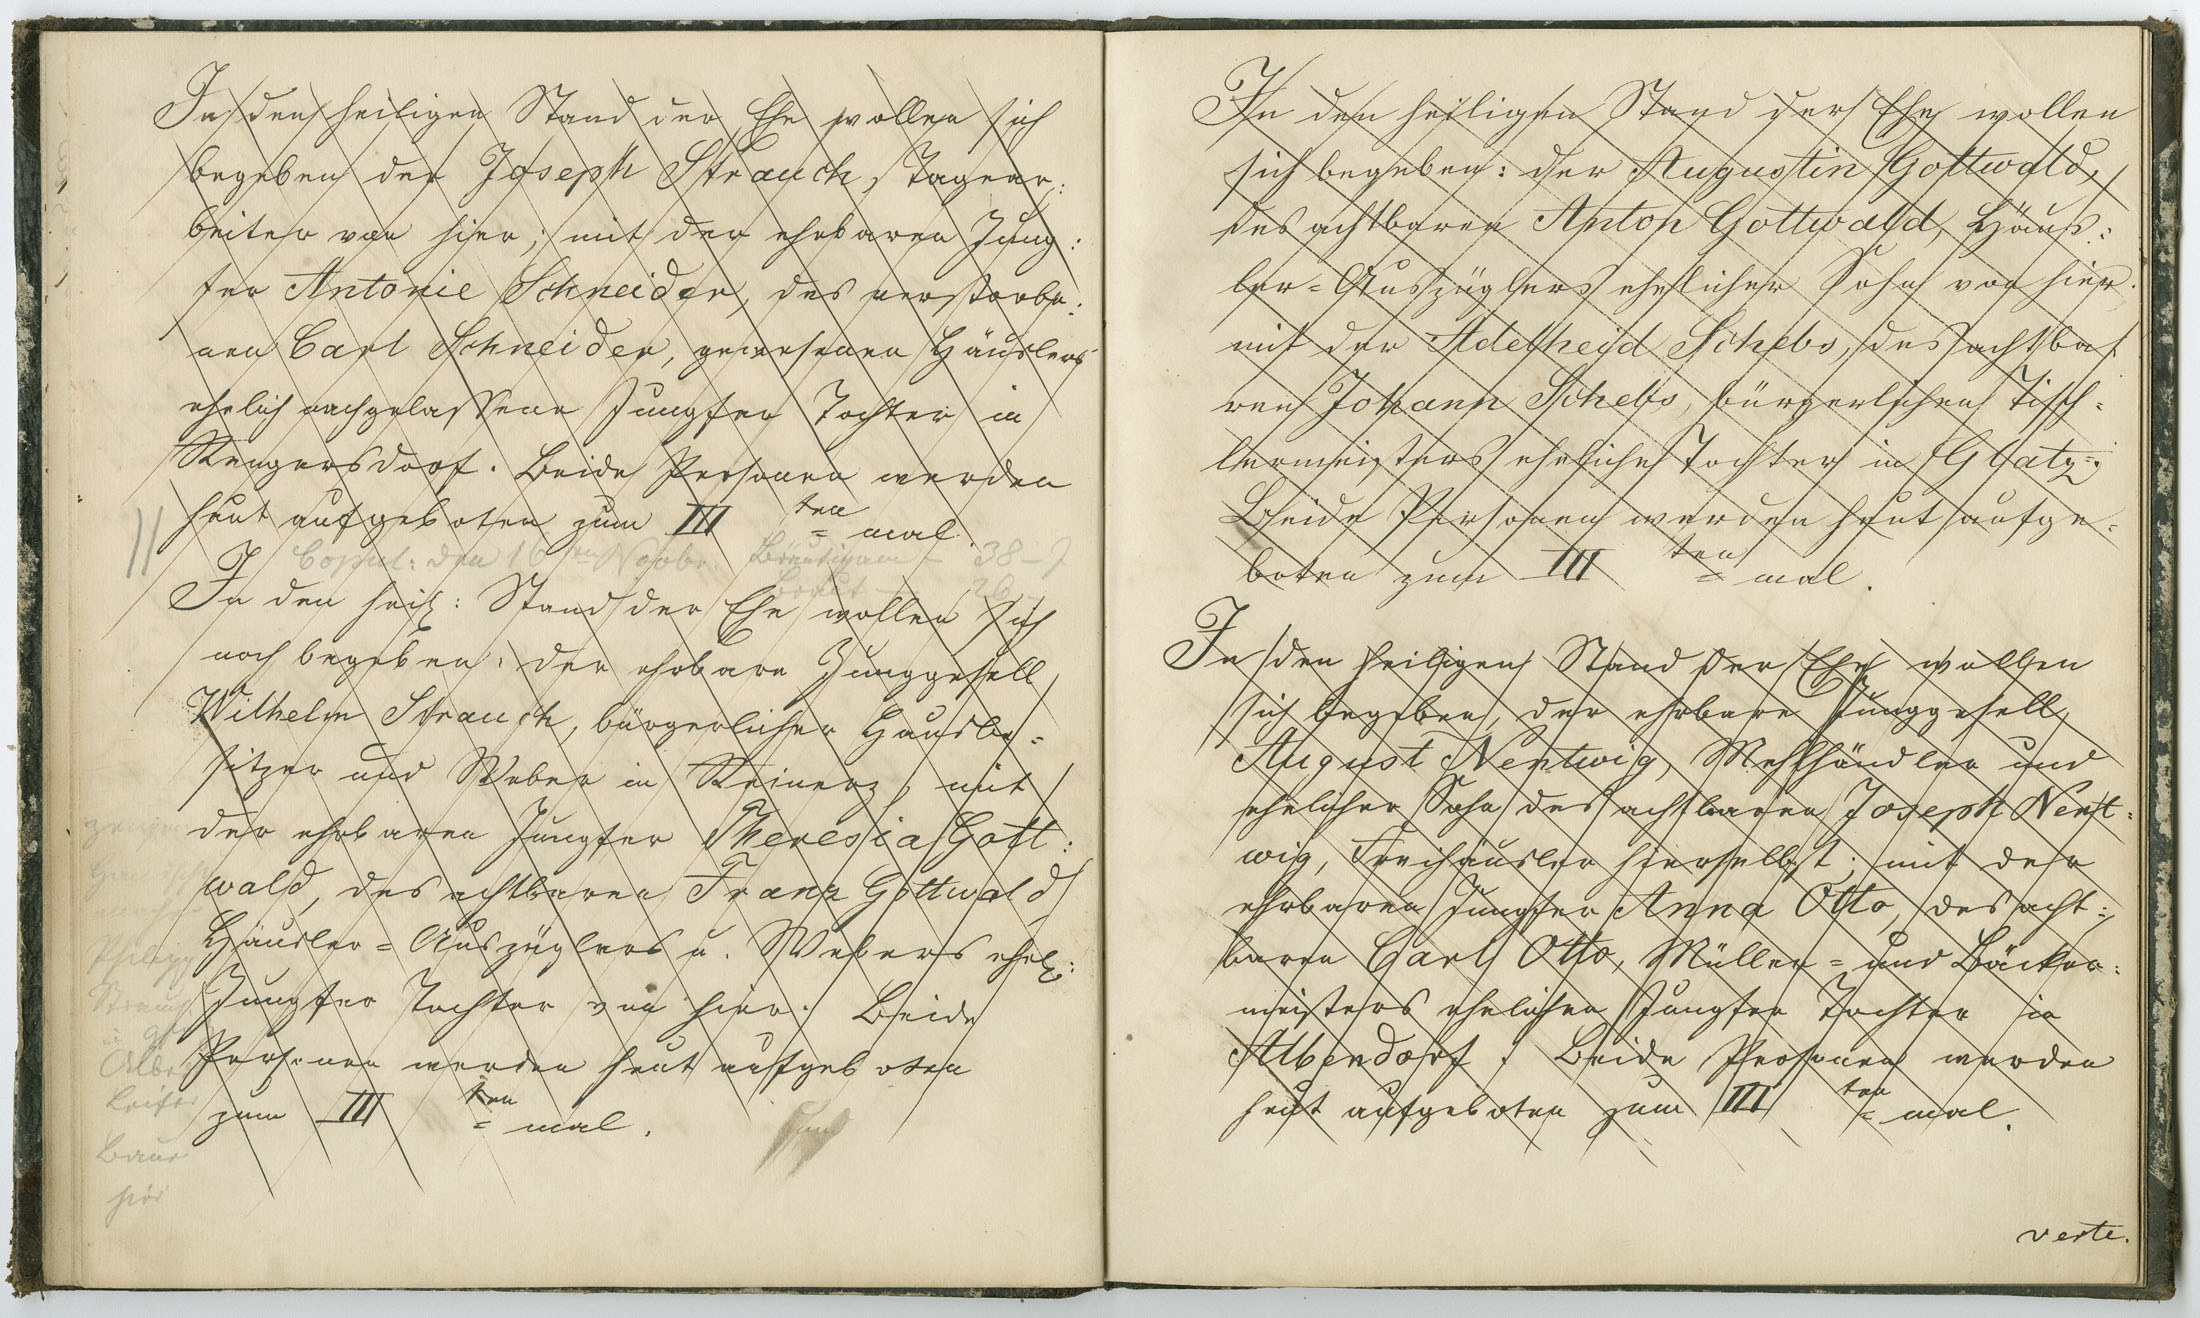 In den heiligen Stand der Ehe wollen sich
begeben der Joseph Strauch, Tagear:
beiter von hier; mit der ehrbaren Jung:
fer Antonie Schneider, des verstorbe:
nen Carl Schneider, gewesenen Häuslers
ehelich nachgelassene Jungfer Tochter in
Rengersdorf. Beide Personen werden
heut aufgeboten zum III ten = mal.
Copul: den 16ten Novbr. Bräutigam – 38 – J
Braut – 26
In den heil: Stand der Ehe wollen sich
noch begeben: der ehrbare Junggesell
Wilhelm Strauch, bürgerlicher Hausbe=
sitzer und Weber in Reinerz, mit
der ehrbaren Jungfer Theresia Gott:
wald, des achtbaren Franz Gottwald
Häusler=Auszüglers u. Webers ehel:
Jungfer Tochter von hier. Beide
Personen werden heut aufgeboten
zum III ten = mal.
Strauch
Bauer
hier
In den heiligen Stand der Ehe wollen
sich begeben: der Augustin Gottwald,
des achtbaren Anton Gottwald, Häus:
ler=Auszüglers ehelicher Sohn von hier.
mit der Adelheid Schebs, des achtba:
ren Johann Schebs, bürgerlichen Tisch=
lermeisters eheliche Tochter in Glatz.
Beide Personen werden heut aufge=
boten zum III ten = mal.
In den heiligen Stand der Ehe wollen
sich begeben, der ehrbare Junggesell,
August Nentwig, Mehlhändler und
ehelicher Sohn des achtbaren Joseph Nent=
wig, Freihäusler hierselbst; mit der
ehrbaren Jungfer Anna Otto, des acht:
baren Carl Otto, Müller= und Bäcker:
meisters ehelichen Jungfer Tochter in
Albendorf. Beide Personen werden
heut aufgeboten zum III ten = mal.
verte.